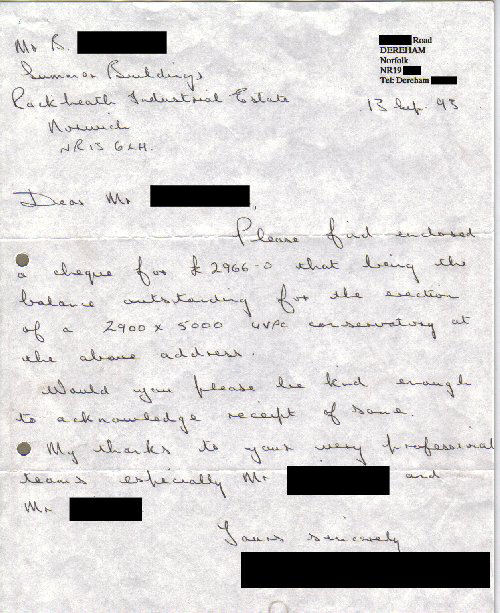 Road
DEREHAM
Norfolk
NR19
Tel: Dereham
Mr B.
Summer Buildings
Rackheath Industrial Estate
Norwich
NR13 6LH.
13 Sep. 93
Dear Mr ,
Please find enclosed
a cheque for £2966-0 that being the
balance outstanding for the erection
of a 2900 x 5000 uVPC conservatory at
the above address.
Would you please be kind enough
to acknowledge receipt of same.
My thanks to your very professional
teams especially Mr and
Mr
Yours sincerely